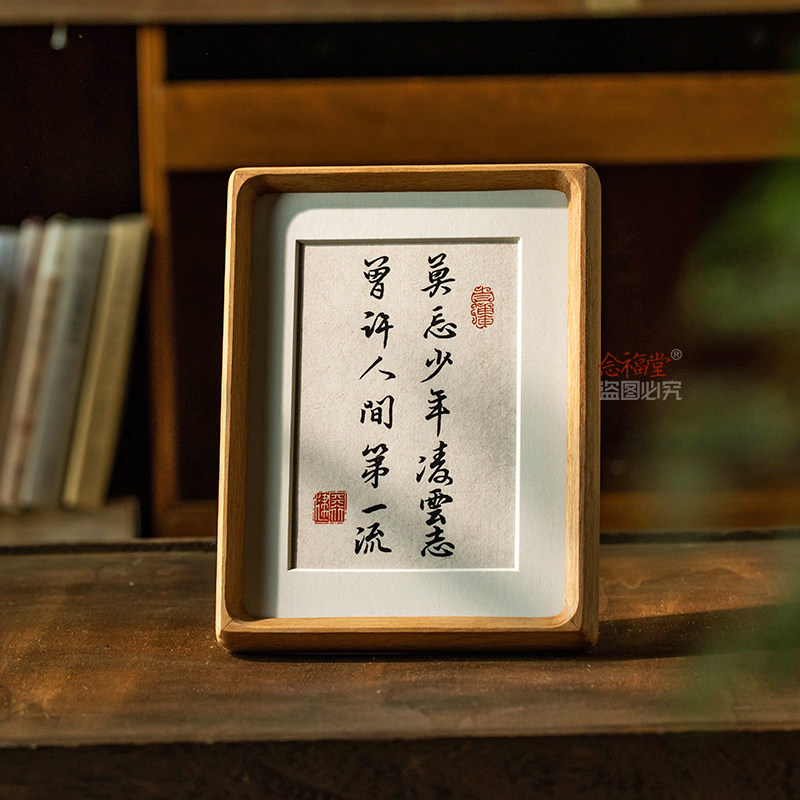 莫忘少年凌雲志
曾许人間第一流
念福堂®
盗图必究